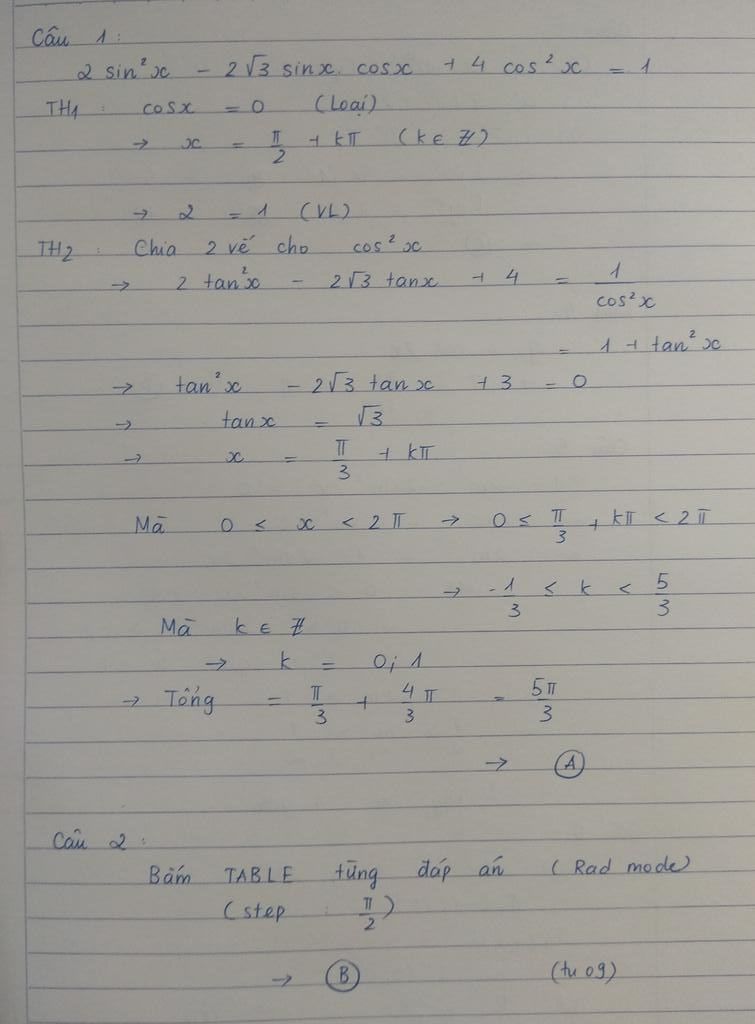 Câu 1:
2 sin²x - 2√3 sinx. cosx + 4 cos²x = 1
TH1: cosx = 0 (Loại)
→ x = π/2 + kπ (k ∈ ℤ)
→ 2 = 1 (VL)
TH2: Chia 2 vế cho cos²x
→ 2 tan²x - 2√3 tanx + 4 = 1/cos²x
= 1 + tan²x
→ tan²x - 2√3 tanx + 3 = 0
→ tanx = √3
→ x = π/3 + kπ
Mà 0 ≤ x < 2π → 0 ≤ π/3 + kπ < 2π
→ -1/3 ≤ k < 5/3
Mà k ∈ ℤ
→ k = 0; 1
→ Tổng = π/3 + 4/3 π = 5π/3
→ A
Câu 2:
Bấm TABLE từng đáp án (Rad mode)
(step : π/2)
→ B (tu09)